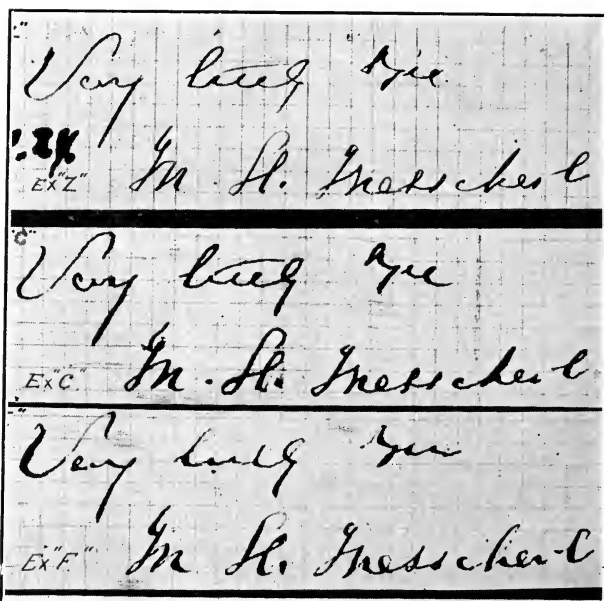 Very truly
Ex "Z" M. H. Messchert
"C"
Very truly
Ex "C" M. H. Messchert
Very truly
Ex "F" M H. Messchert